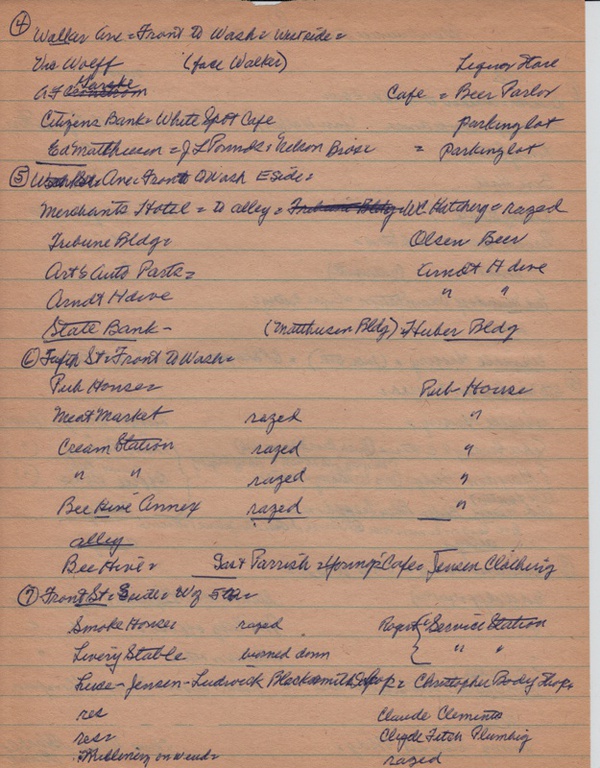 ④ Walker Ave = Front to Wash = Westside =
Wolff (face Walker) Liquor Store
A F Cafe = Beer Parlor
Citizens Bank = White Spot Cafe parking lot
Ed Matthiesen = J L Pounds = Nelson Bros = = Parking lot
⑤ Ave = Front to Wash E Side =
Merchants Hotel = to alley = Tribune Bldg = Hatchery = razed
Tribune Bldg = Olsen Beer
Art's Auto Parts = Arndt H dwe
Arndt H dwe " "
State Bank - (Matthiesen Bldg) = Huber Bldg
⑥ St = Front to Wash =
Pub House = Pub House
Meat Market razed "
Cream Station razed "
" " razed "
Bee Hive Annex razed "
alley
Bee Hive = Parrish = Cafe = Jensen Clothing
⑦ Front St =
Smoke House razed Service Station
Livery Stable burned down " "
Luse - Jensen - Ludwick Blacksmith Shop = Christopher Body Shop
res Claude Clements
res = Clyde Fitch Plumbing
Millinery on razed